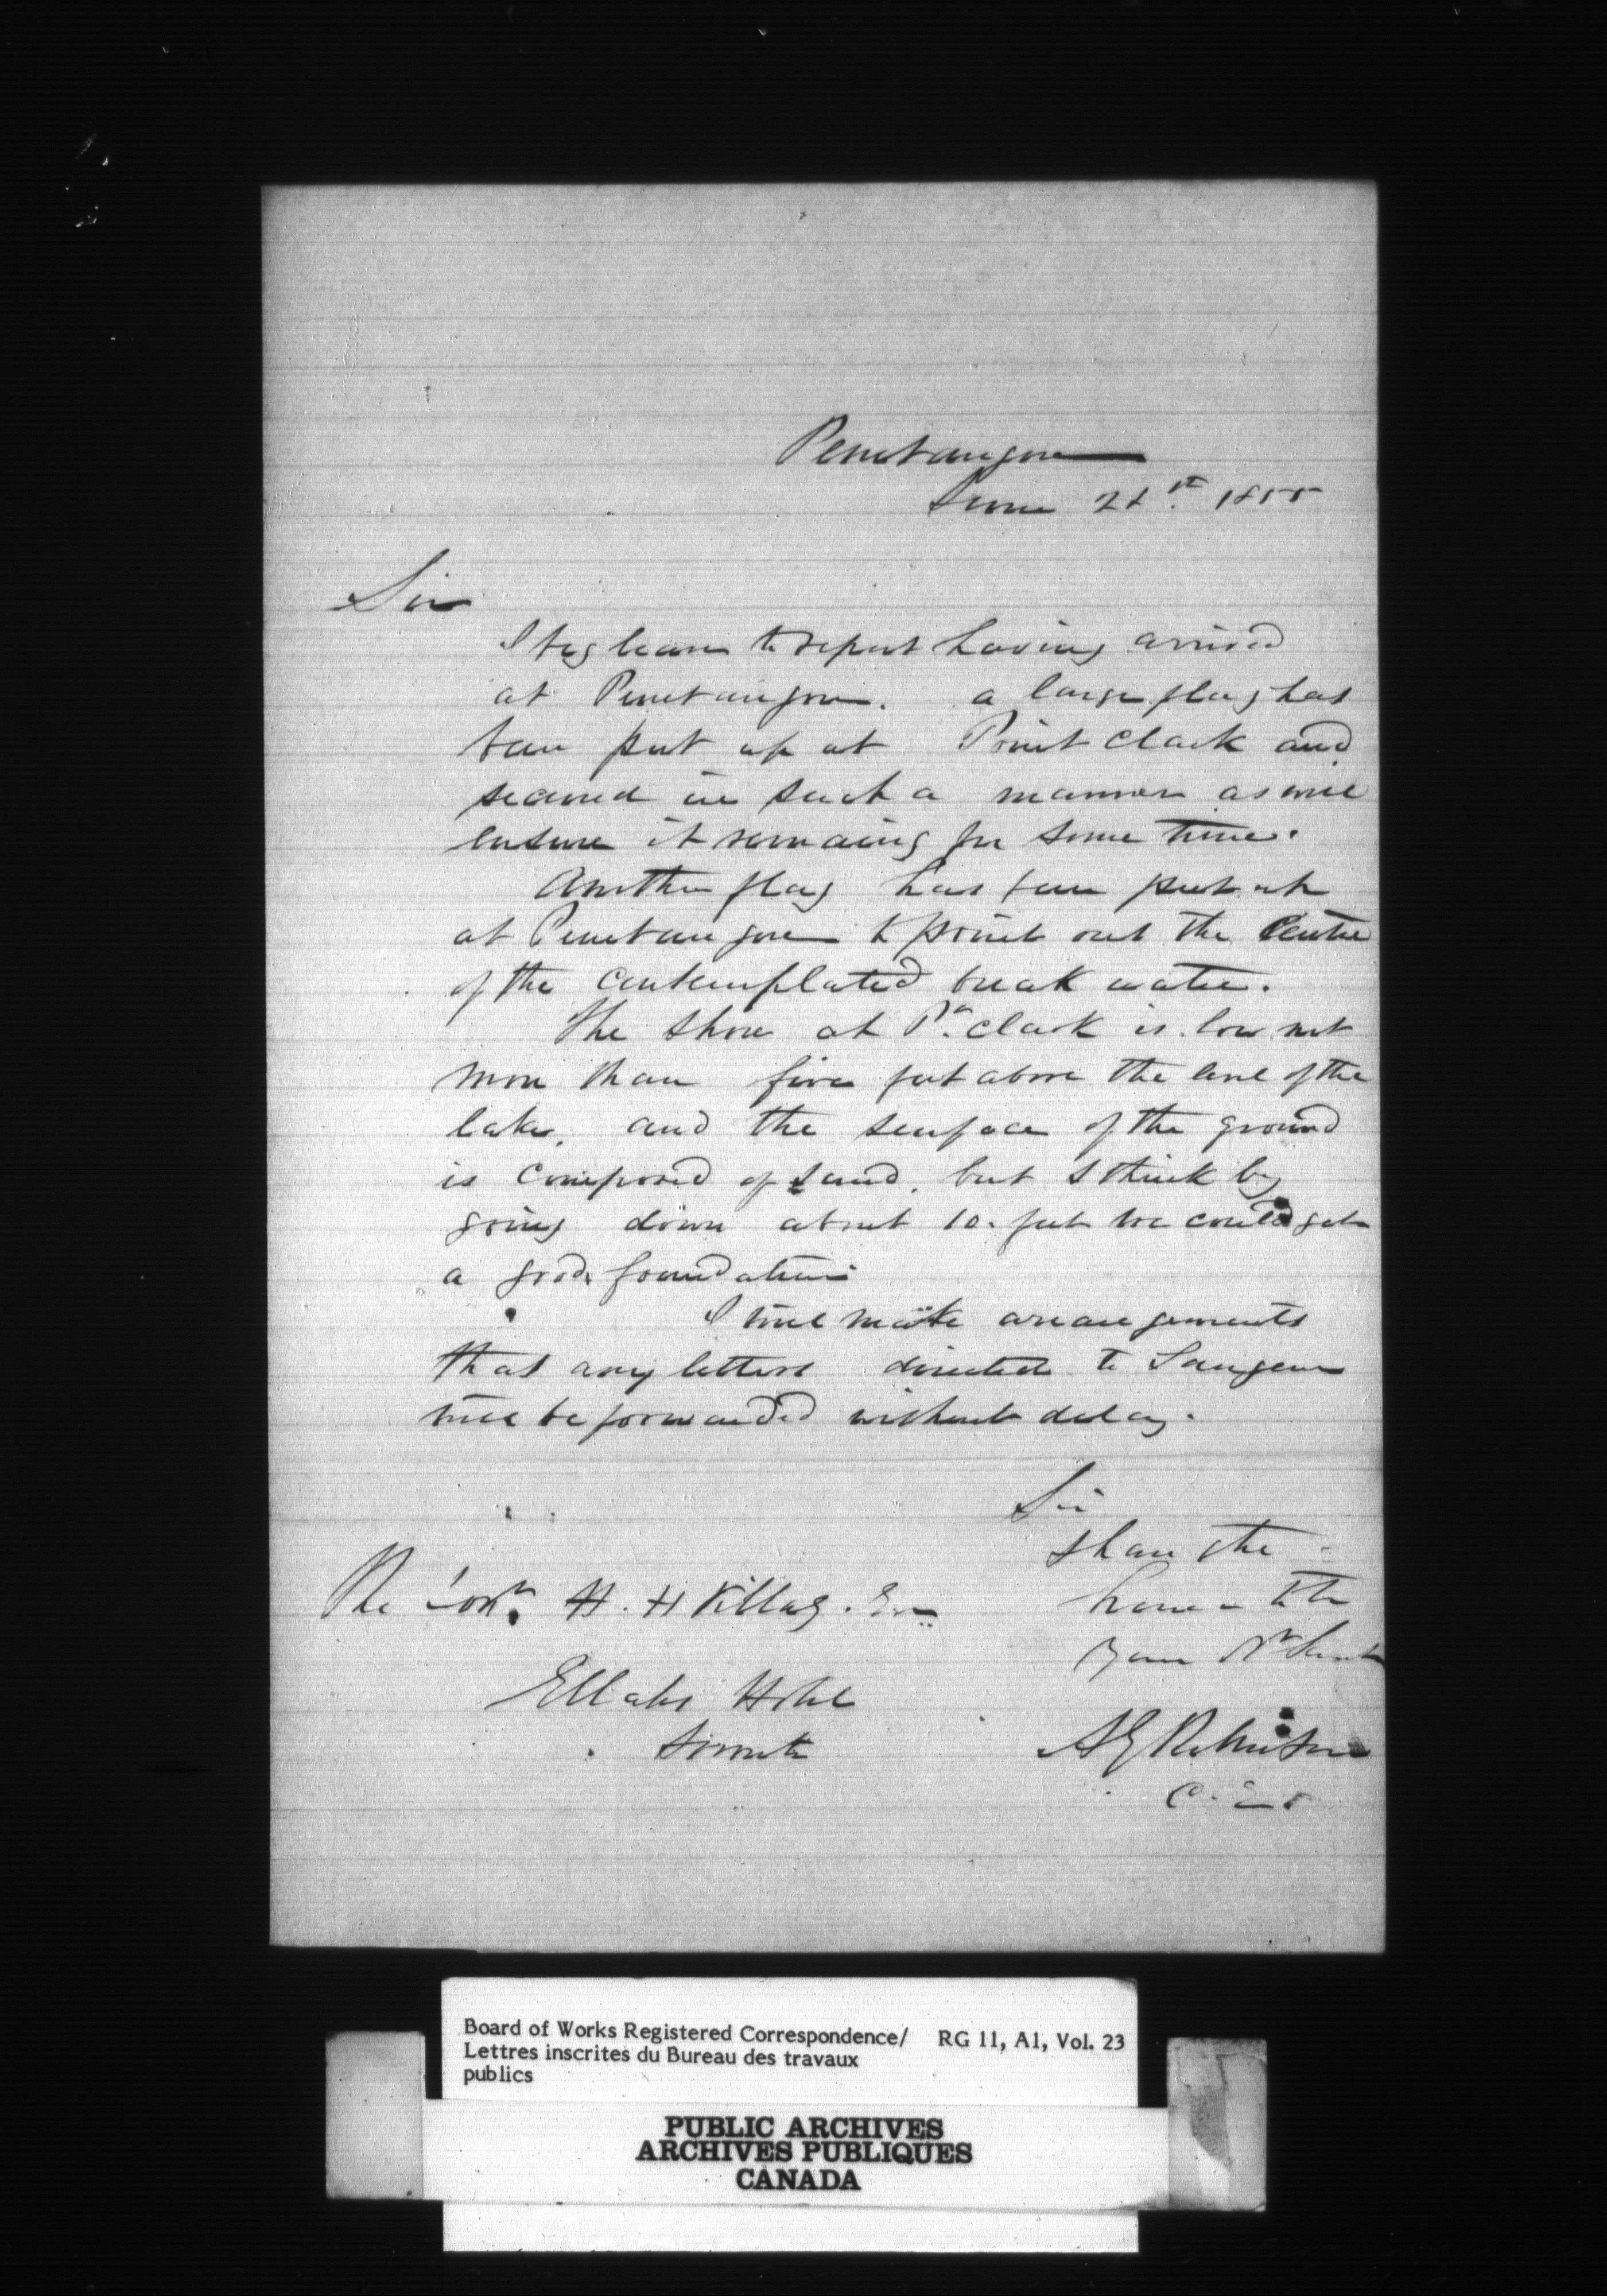 Penetangore
June 21st 1855
Sir
I beg leave to report having arrived
at Penetangore. a large flag has
been put up at Point Clark and
secured in such a manner as will
ensure it remaing for some time.
Another flag has been put up
at Penetangore to point out the Centre
of the contemplated break water.
The shore at Pt. Clark is low not
more than five feet above the level of the
lake, and the surface of the ground
is composed of sand, but I think by
going down about 10. feet we could get
a good foundation
I will make arrangements
that any letters directed to Saugeen
will be forwarded without delay.
Sir
I have the
honor to be
Your Ob Servt
The Honr. H. H Killaly. Esq
Ellahs Hotel
Toronto
A G Robinson
C. E
Board of Works Registered Correspondence/ RG 11, A1, Vol. 23
Lettres inscrites du Bureau des travaux
publics
PUBLIC ARCHIVES
ARCHIVES PUBLIQUES
CANADA